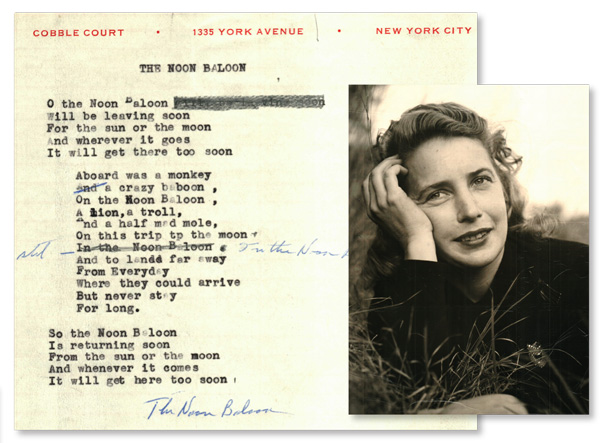 COBBLE COURT • 1335 YORK AVENUE • NEW YORK CITY
THE NOON BALOON
O the Noon Baloon
Will be leaving soon
For the sun or the moon
And wherever it goes
It will get there too soon
Aboard was a monkey
and a crazy baboon,
On the Noon Baloon,
A lion, a troll,
And a half mad mole,
On this trip tp the moon
In the Noon Baloon,
On the Noon
And to landd far away
From Everyday
Where they could arrive
But never stay
For long.
So the Noon Baloon
Is returning soon
From the sun or the moon
And whenever it comes
It will get here too soon
The Noon Baloon